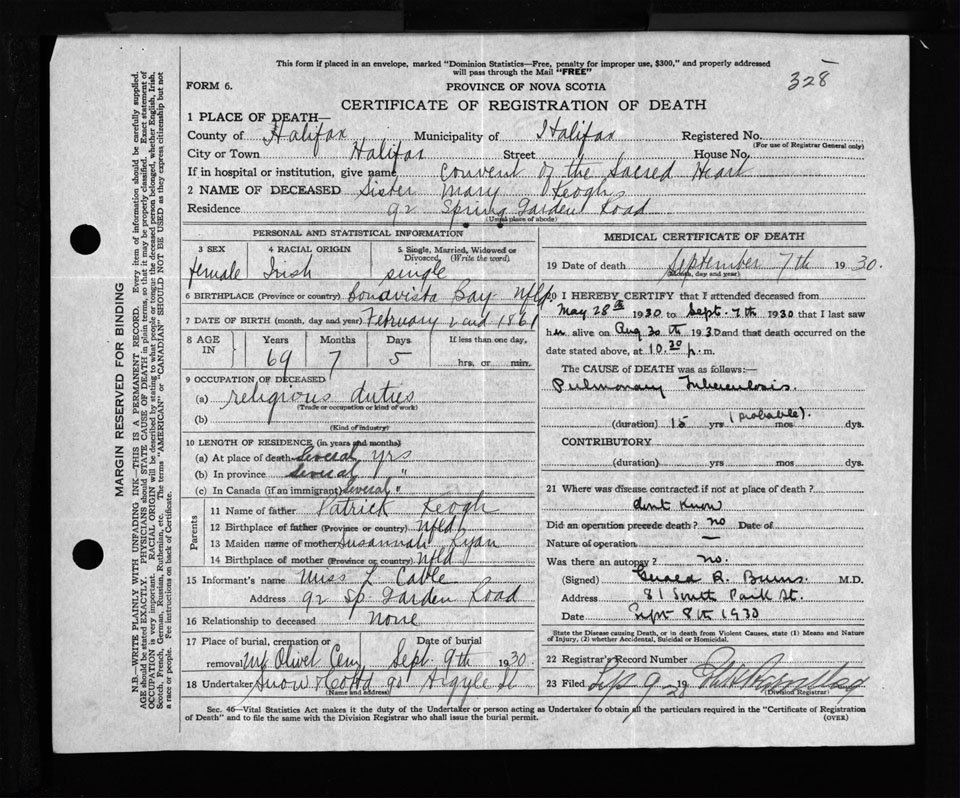 This form if placed in an envelope, marked "Dominion Statistics—Free, penalty for improper use, $300," and properly addressed
will pass through the Mail "FREE"
328
FORM 6.
PROVINCE OF NOVA SCOTIA
CERTIFICATE OF REGISTRATION OF DEATH
1 PLACE OF DEATH—
County of Halifax Municipality of Halifax Registered No.
(For use of Registrar General only)
City or Town Halifax Street House No.
If in hospital or institution, give name Convent of the Sacred Heart
2 NAME OF DECEASED Sister Mary Keogh
Residence 92 Spring Garden Road
(Usual place of abode)
PERSONAL AND STATISTICAL INFORMATION
3 SEX 4 RACIAL ORIGIN 5 Single, Married, Widowed or Divorced, (Write the word)
female Irish single
6 BIRTHPLACE (Province or country) Bonavista Bay Nfld
7 DATE OF BIRTH (month, day and year) February 2nd 1861
8 AGE IN Years Months Days If less than one day,
69 7 5 hrs, or min.
9 OCCUPATION OF DECEASED
(a) religious duties
(Trade or occupation or kind of work)
(b)
(Kind of industry)
10 LENGTH OF RESIDENCE (in years and months)
(a) At place of death Several yrs
(b) In province Several "
(c) In Canada (if an immigrant) Several "
Parents
11 Name of father Patrick Keogh
12 Birthplace of father (Province or country) Nfld
13 Maiden name of mother Susannah Ryan
14 Birthplace of mother (Province or country) Nfld
15 Informant's name Miss L Cable
Address 92 Sp. Garden Road
16 Relationship to deceased none
17 Place of burial, cremation or removal Mt Olivet Cem Date of burial Sept 9th 1930
18 Undertaker Snow & Co Ltd 90 Argyle St
(Name and address)
MEDICAL CERTIFICATE OF DEATH
19 Date of death September 7th 1930.
(Month, day and year)
20 I HEREBY CERTIFY that I attended deceased from
May 28th 1930 to Sept. 7th 1930 that I last saw
her alive on Aug 30th 1930 and that death occurred on the
date stated above, at 10.20 p.m.
The CAUSE OF DEATH was as follows:—
Pulmonary Tuberculosis.
(probable).
(duration) 15 yrs mos dys.
CONTRIBUTORY
(duration) yrs mos dys.
21 Where was disease contracted if not at place of death?
dont know
Did an operation precede death? no Date of
Nature of operation —
Was there an autopsy? no.
(Signed) Gerald R. Burns. M.D.
Address 81 South Park St.
Date Sept 8th 1930
State the Disease causing Death, or in death from Violent Causes, state (1) Means and Nature
of Injury, (2) whether Accidental, Suicidal or Homicidal.
22 Registrar's Record Number
23 Filed Sep 9 19
(Division Registrar)
Sec. 46—Vital Statistics Act makes it the duty of the Undertaker or person acting as Undertaker to obtain all the particulars required in the "Certificate of Registration
of Death" and to file the same with the Division Registrar who shall issue the burial permit.
(OVER)
MARGIN RESERVED FOR BINDING
N.B.—WRITE PLAINLY WITH UNFADING INK—THIS IS A PERMANENT RECORD. Every item of information should be carefully supplied.
AGE should be stated EXACTLY. PHYSICIANS should STATE CAUSE OF DEATH in plain terms, so that it may be properly classified. Exact statement of
OCCUPATION is very important. RACIAL ORIGIN will be described by stating to what people or tongue the deceased person belonged, whether English, Irish,
Scotch, French, German, Russian, Ruthenian, etc. The terms "AMERICAN" or "CANADIAN" SHOULD NOT BE USED as they express citizenship but not
a race or people. Fee instructions on back of Certificate.